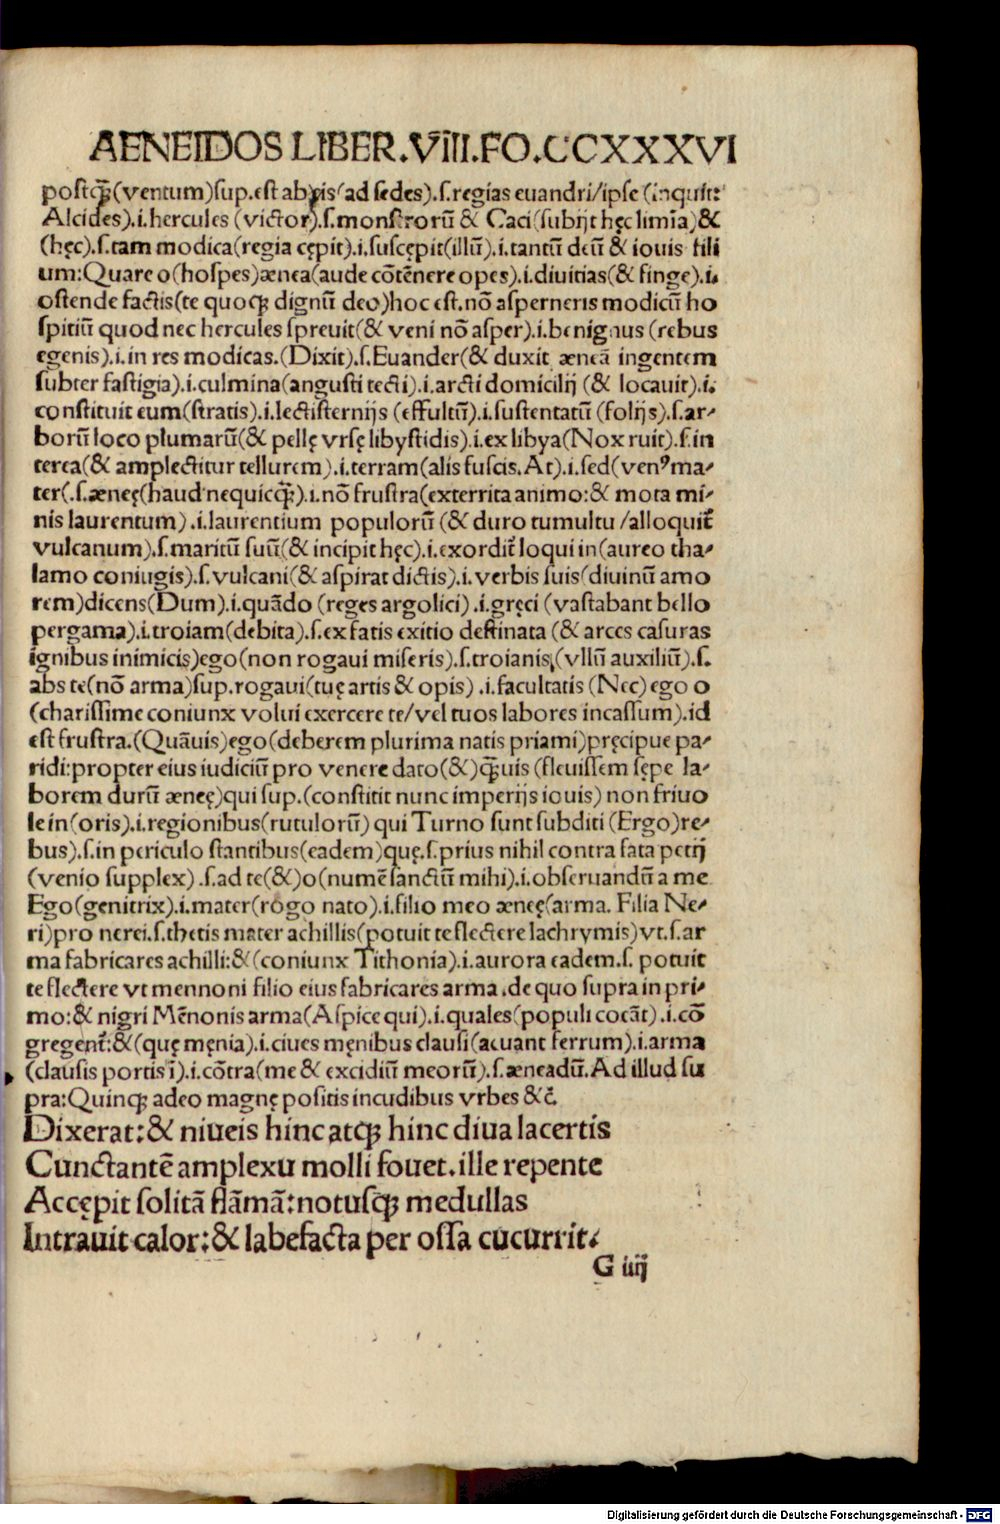 AENEIDOS LIBER.VIII.FO.CCXXXVI
postq̃ꝫ(ventum)sup.est ab ijs(ad sedes).s.regias euandri/ipse (inquit:
Alcides).i.hercules (victor).s.monstrorũ & Caci(subijt hęc limīa)&
(hęc).s.tam modica(regia cępit).i.suscępit(illũ).i.tantũ deũ & iouis fili
um:Quare o(hospes)ænea(aude cõtẽnere opes).i.diuitias(& finge).i.
ostende factis(te quoqꝫ dignũ deo)hoc est.nõ asperneris modicũ ho
spitiũ quod nec hercules spreuit(& veni nõ asper).i.benignus (rebus
egenis).i.in res modicas.(Dixit).s.Euander(& duxit æneã ingentem
subter fastigia).i.culmina(angusti tecti).i.arcti domicilij (& locauit).i.
constituit eum(stratis).i.lectisternijs (effultũ).i.sustentatũ (folijs).s.ar-
borũ loco plumarũ(& pellę vrsę libystidis).i.ex libya(Nox ruit).s.in
terea(& amplectitur tellurem).i.terram(alis fuscis.At).i.sed(venꝰma-
ter(.s.æneę(haud nequicq̃ꝫ).i.nõ frustra(exterrita animo:& mota mi-
nis laurentum).i.laurentium populorũ (& duro tumultu/alloquit᷑
vulcanum).s.maritũ suũ(& incipit hęc).i.exordit᷑ loqui in(aureo tha-
lamo coniugis).s.vulcani(& aspirat dictis).i.verbis suis(diuinũ amo
rem)dicens(Dum).i.quãdo (reges argolici).i.gręci (vastabant bello
pergama).i.troiam(debita).s.ex fatis exitio destinata (& arces casuras
ignibus inimicis)ego(non rogaui miseris).s.troianis(vllũ auxiliũ).s.
abs te(nõ arma)sup.rogaui(tuę artis & opis).i.facultatis (Nec)ego o
(charissime coniunx volui exercere te/vel tuos labores incassum).id
est frustra.(Quãuis)ego(deberem plurima natis priami)pręcipue pa-
ridi:propter eius iudiciũ pro venere dato(&)q̃ꝫuis (fleuissem sępe la-
borem durũ æneę)qui sup.(constitit nunc imperijs iouis) non friuo
le in(oris).i.regionibus(rutulorũ) qui Turno sunt subditi (Ergo)re-
bus).s.in periculo stantibus(eadem)quę.s.prius nihil contra fata petij
(venio supplex).s.ad te(&)o(numẽ sanctũ mihi).i.obseruandũ a me
Ego(genitrix).i.mater(rogo nato).i.filio meo æneę(arma. Filia Ne-
ri)pro nerei.s.thetis mater achillis(potuit te flectere lachrymis)vt.s.ar
ma fabricares achilli:&(coniunx Tithonia).i.aurora eadem.s. potuit
te flectere vt mennoni filio eius fabricares arma.de quo supra in pri-
mo:& nigri Mẽnonis arma(Aspice qui).i.quales(populi coeãt).i.cõ
gregent᷑:&(quę męnia).i.ciues męnibus clausi(acuant ferrum).i.arma
(clausis portis ĩ).i.cõtra(me & excidiũ meorũ).s.æneadũ.Ad illud su
pra:Quinqꝫ adeo magnę positis incudibus vrbes &c̃.
Dixerat:& niueis hinc atqꝫ hinc diua lacertis
Cunctantẽ amplexu molli fouet.ille repente
Accępit solitã flãmã:notusqꝫ medullas
Intrauit calor:& labefacta per ossa cucurrit.
G iiij
Digitalisierung gefördert durch die Deutsche Forschungsgemeinschaft - DFG